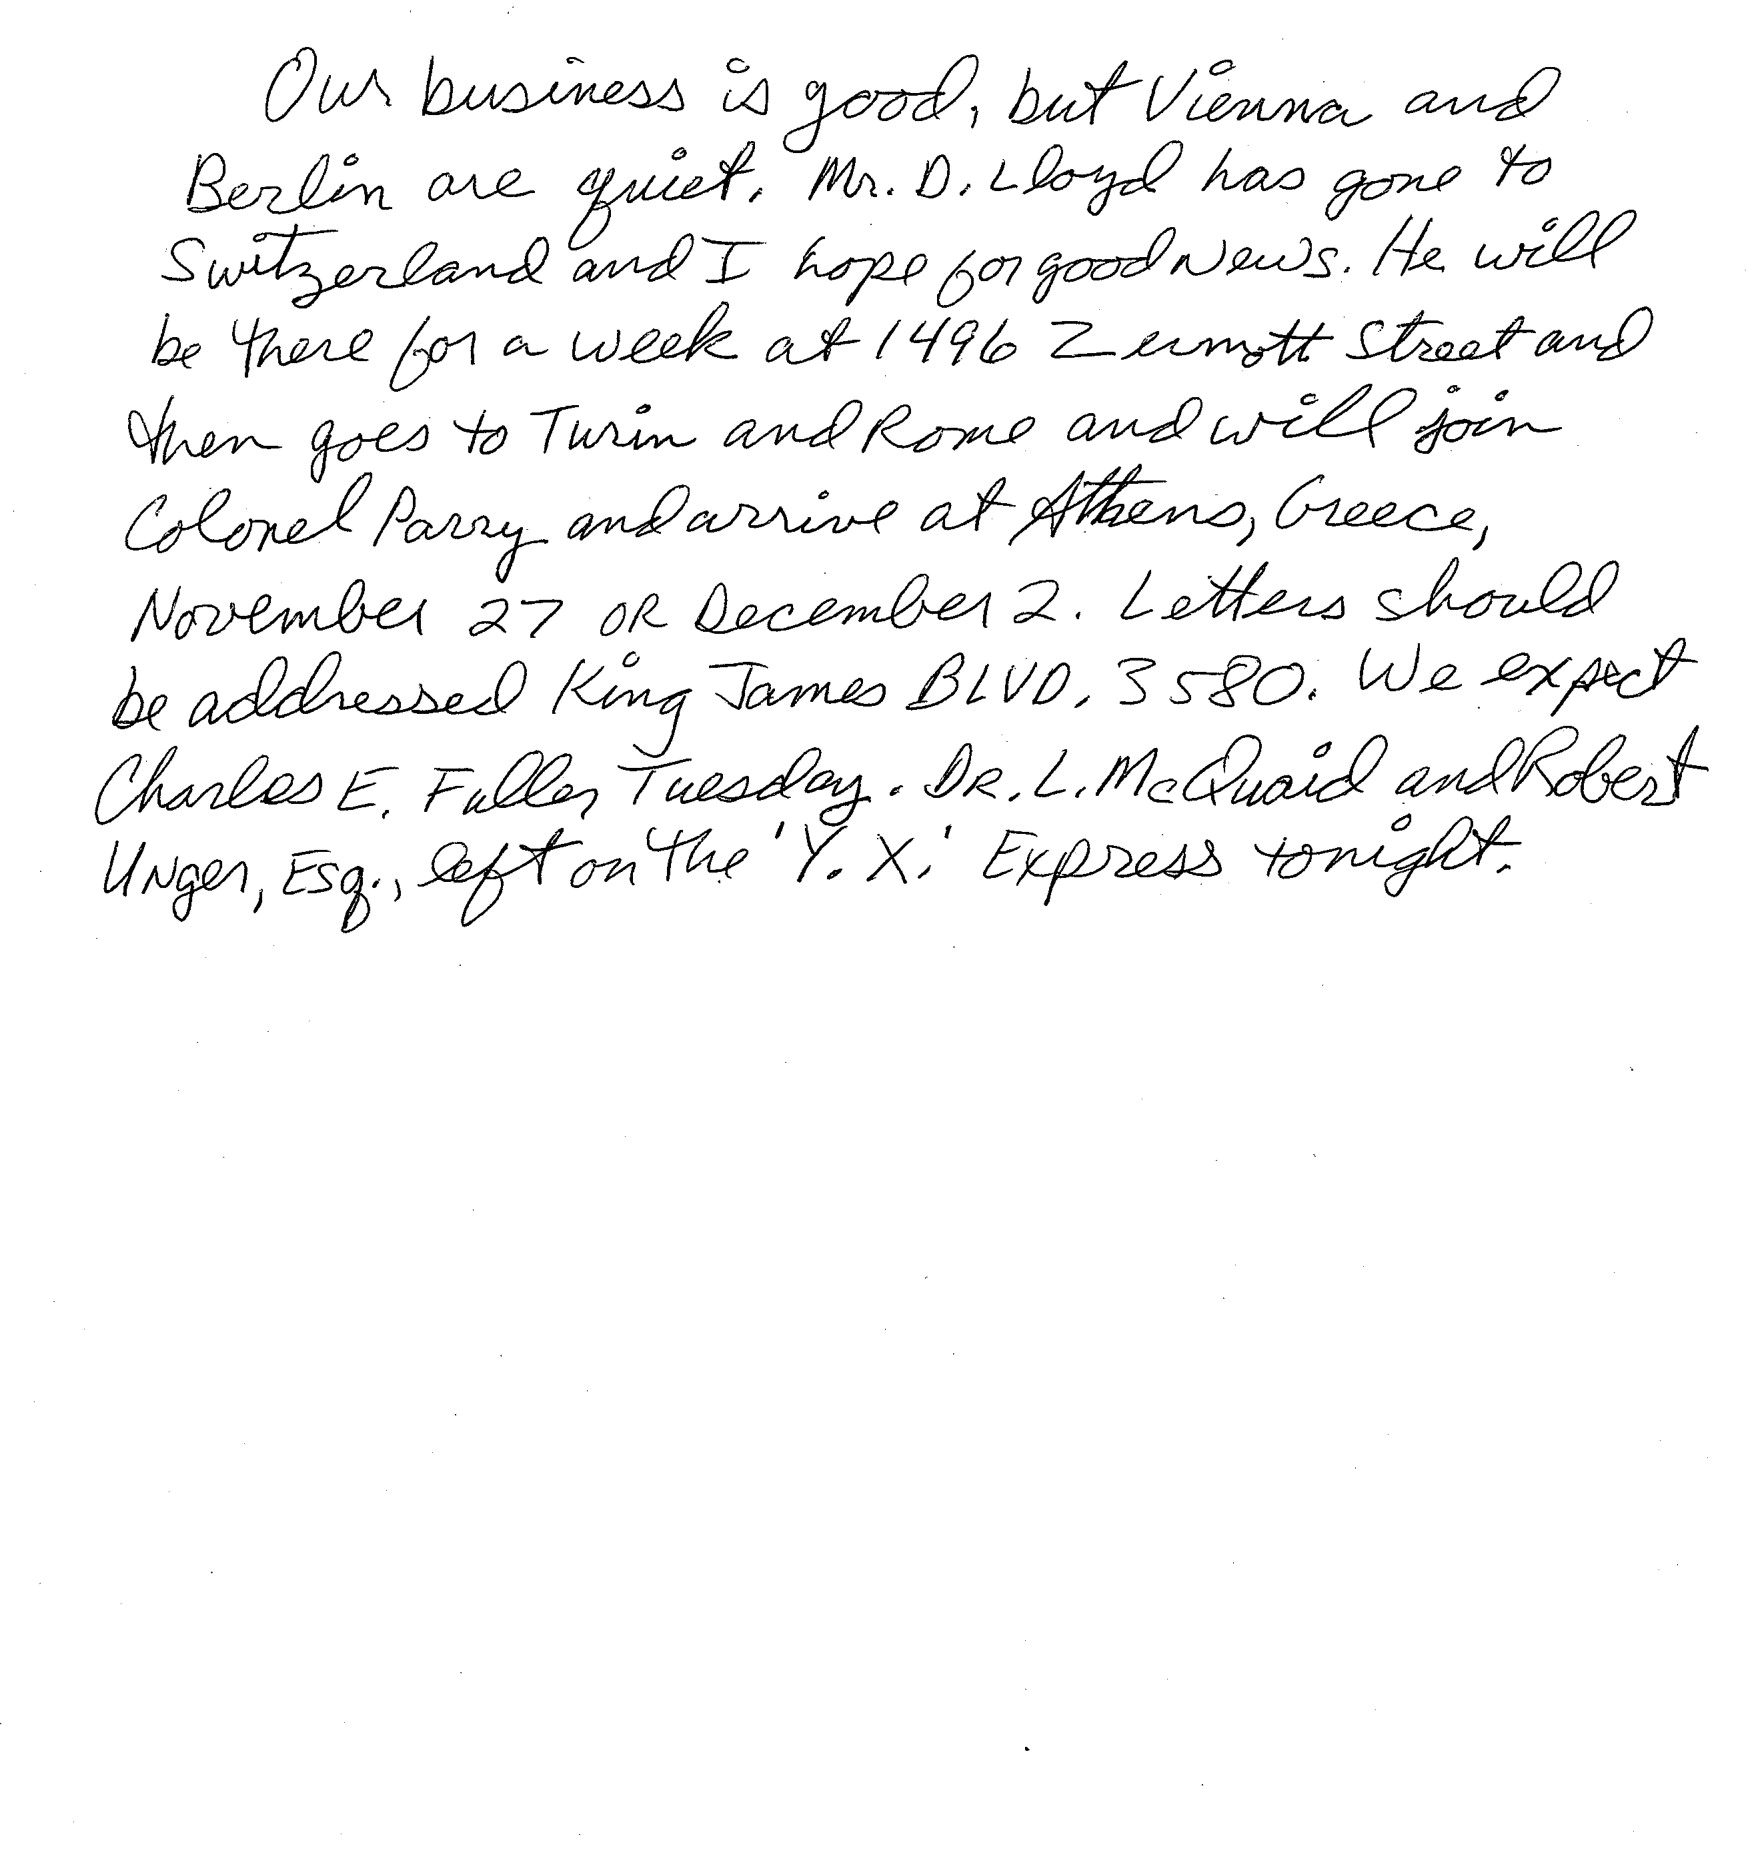 Our business is good, but Vienna and
Berlin are quiet. Mr. D. Lloyd has gone to
Switzerland and I hope for good news. He will
be there for a week at 1496 Zermott Street and
then goes to Turin and Rome and will join
Colonel Parry and arrive at Athens, Greece,
November 27 or December 2. Letters should
be addressed King James BLVD. 3580. We expect
Charles E. Fuller Tuesday. DR. L. McQuaid and Robert
Unger, Esq., left on the 'Y. X.' Express tonight.